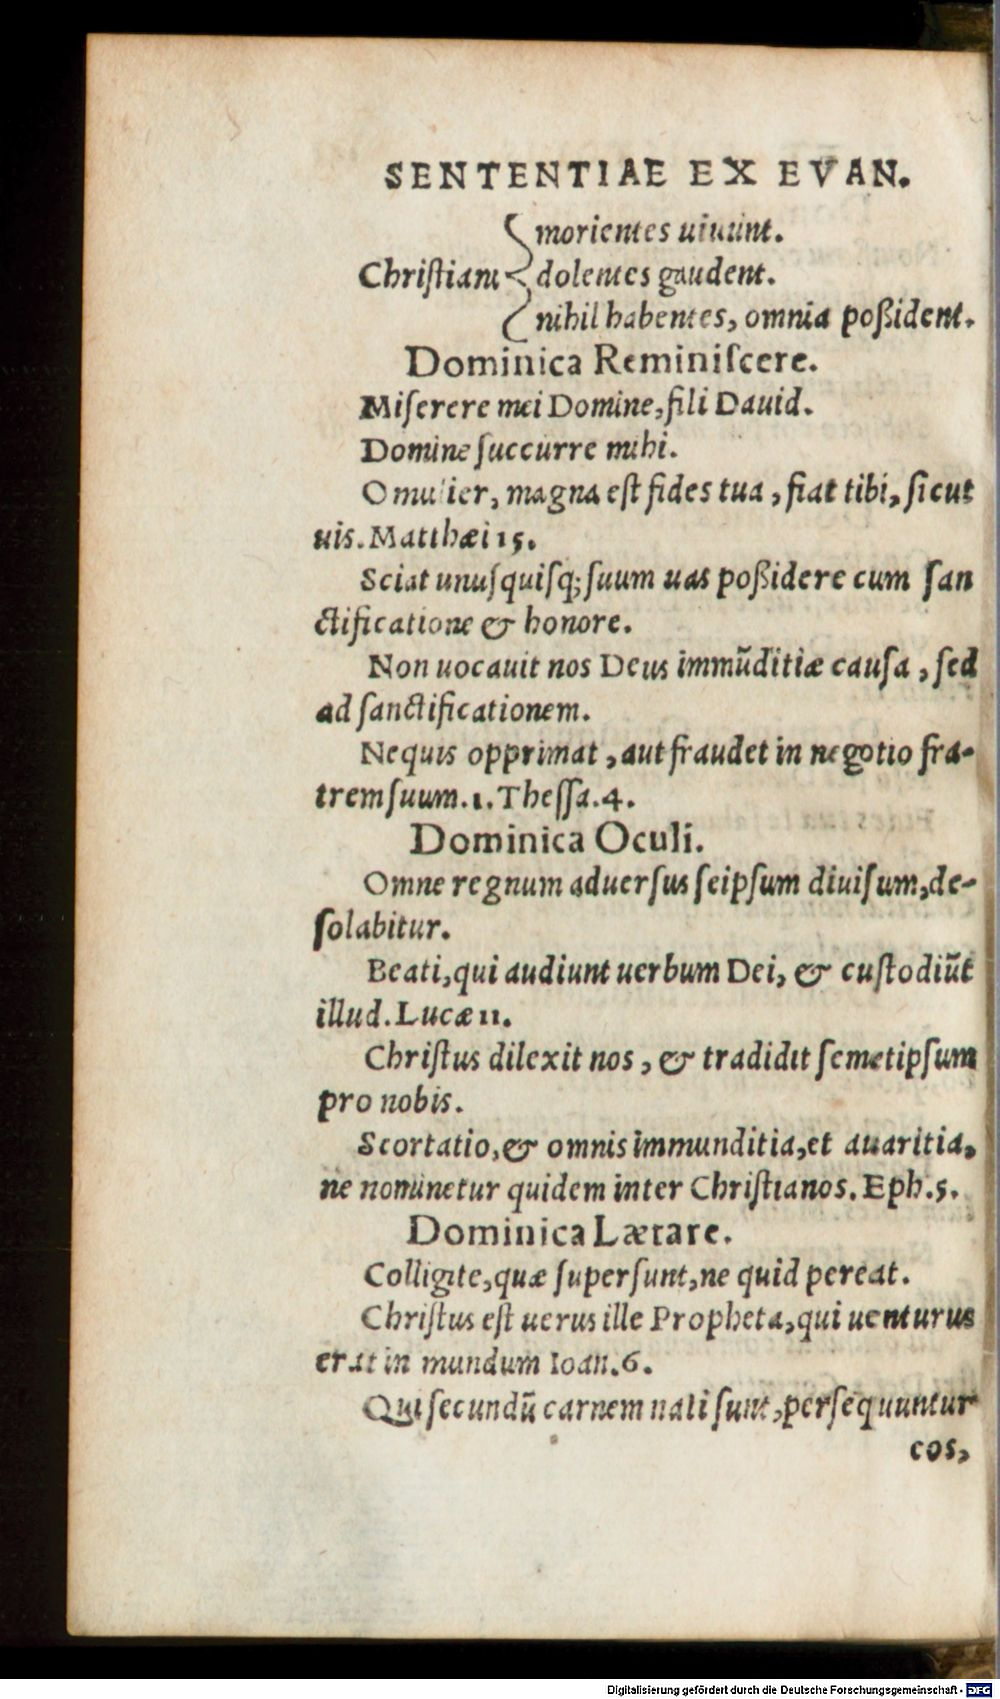 SENTENTIAE EX EVAN.
morientes uiuunt.
Christiani dolentes gaudent.
nihil habentes, omnia poßident.
Dominica Reminiſcere.
Miſerere mei Domine, fili Dauid.
Domine ſuccurre mihi.
O mulier, magna eſt fides tua, fiat tibi, ſicut
uis. Matthæi 15.
Sciat unuſquiſq; ſuum uas poßidere cum ſan
ctificatione & honore.
Non uocauit nos Deus immũditiæ cauſa, ſed
ad ſanctificationem.
Nequis opprimat, aut fraudet in negotio fra-
trem ſuum. 1. Theſſa. 4.
Dominica Oculi.
Omne regnum aduerſus ſeipſum diuiſum, de-
ſolabitur.
Beati, qui audiunt uerbum Dei, & cuſtodiũt
illud. Lucæ 11.
Chriſtus dilexit nos, & tradidit ſemetipſum
pro nobis.
Scortatio, & omnis immunditia, et auaritia,
ne nominetur quidem inter Chriſtianos. Eph. 5.
Dominica Lætare.
Colligite, quæ ſuperſunt, ne quid pereat.
Chriſtus eſt uerus ille Propheta, qui uenturus
erat in mundum Ioan. 6.
Qui ſecundũ carnem nati ſunt, perſequuntur
eos,
Digitalisierung gefördert durch die Deutsche Forschungsgemeinschaft - DFG